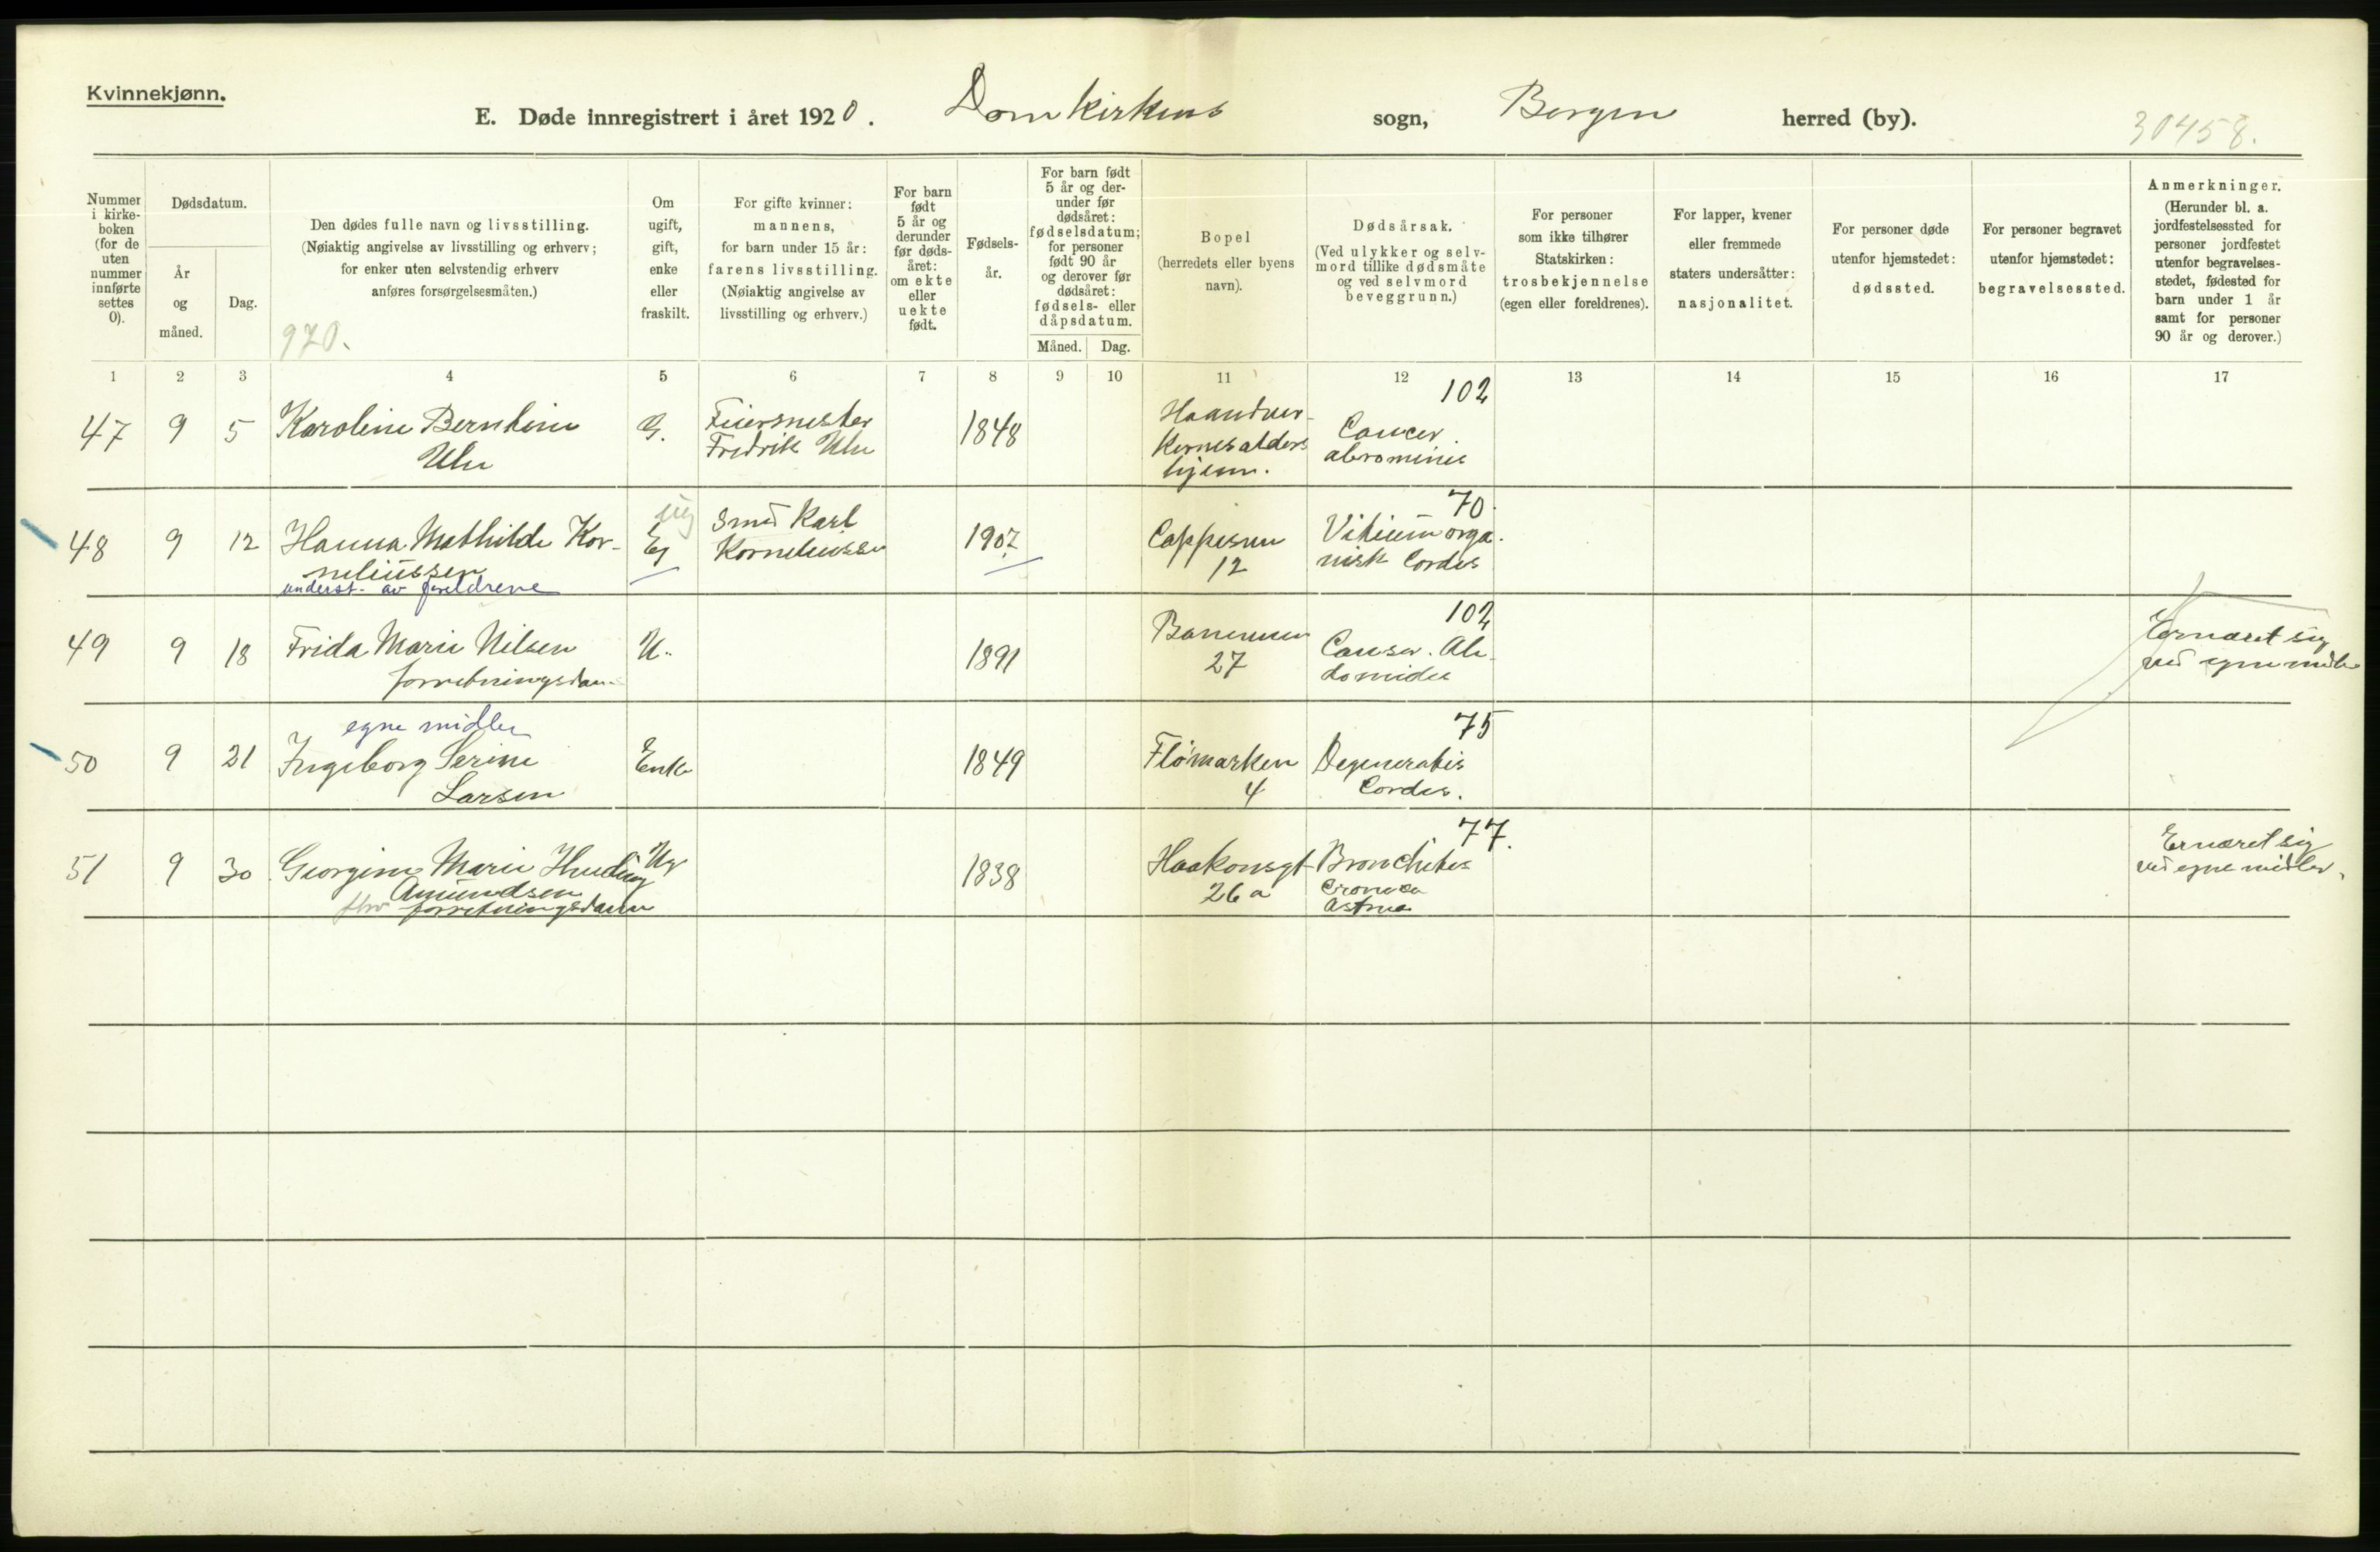 Kvinnekjønn.
E. Døde innregistrert i året 1920. Domkirkens sogn, Bergen herred (by).
30458.
Nummer
i kirke-
boken
(for de
uten
nummer
innførte
settes
0).
Dødsdatum.
År
og
måned.
Dag.
Den dødes fulle navn og livsstilling.
(Nøiaktig angivelse av livsstilling og erhverv;
for enker uten selvstendig erhverv
anføres forsørgelsesmåten.)
920.
Om
ugift,
gift,
enke
eller
fraskilt.
For gifte kvinner:
mannens,
for barn under 15 år:
farens livsstilling.
(Nøiaktig angivelse av
livsstilling og erhverv.)
For barn
født
5 år og
derunder
før døds-
året:
om ekte
eller
uekte
født.
Fødsels-
år.
For barn født
5 år og der-
under før
dødsåret:
fødselsdatum;
for personer
født 90 år
og derover før
dødsåret:
fødsels- eller
dåpsdatum.
Måned. Dag.
Bopel
(herredets eller byens
navn).
Dødsårsak.
(Ved ulykker og selv-
mord tillike dødsmåte
og ved selvmord
beveggrunn.)
For personer
som ikke tilhører
Statskirken:
trosbekjennelse
(egen eller foreldrenes).
For lapper, kvener
eller fremmede
staters undersåtter:
nasjonalitet.
For personer døde
utenfor hjemstedet:
dødssted.
For personer begravet
utenfor hjemstedet:
begravelsessted.
Anmerkninger.
(Herunder bl. a.
jordfestelsessted for
personer jordfestet
utenfor begravelses-
stedet, fødested for
barn under 1 år
samt for personer
90 år og derover.)
1 2 3 4 5 6 7 8 9 10 11 12 13 14 15 16 17
47 9 5 Karoline Berntine
G.
Feiermester
Fredrik
1848
Haandver-
kernes alders
hjem.
102
Cancer
abrominis
48 9 12 Hanna Mathilde Kor-
neliussen
underst. av foreldrene
ug
Smed Karl
Korneliussen
1907
Cappesmu
12
70.
Vitium orga-
nisk Cordis
49 9 18 Frida Marie Nilsen
forretningsdam.
U.
1891
27
102
Canser. Ab-
domides
Ernæret sig
ved egne midle
egne midler
50 9 21 Ingeborg Serine
Larsen
Enke
1849
Fløimarken
4
75
Degeneratis
Cordis.
51 9 30 Georgine Marie
Amundsen
fhv forretningsdame
Ug
1838
Haakonsgt
26 a
77.
Bronchites
Cronica
Astma
Ernæret sig
ved egne midler.